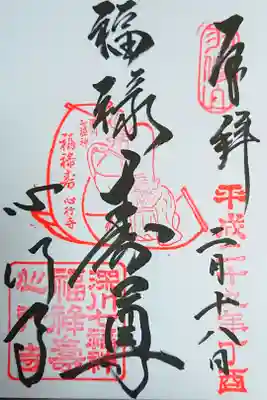 奉拝
平成二十九年丁酉
二月十八日
福禄寿尊
心行寺
七福神
福禄寿
心行寺
深川七福神
福禄寿
心行寺